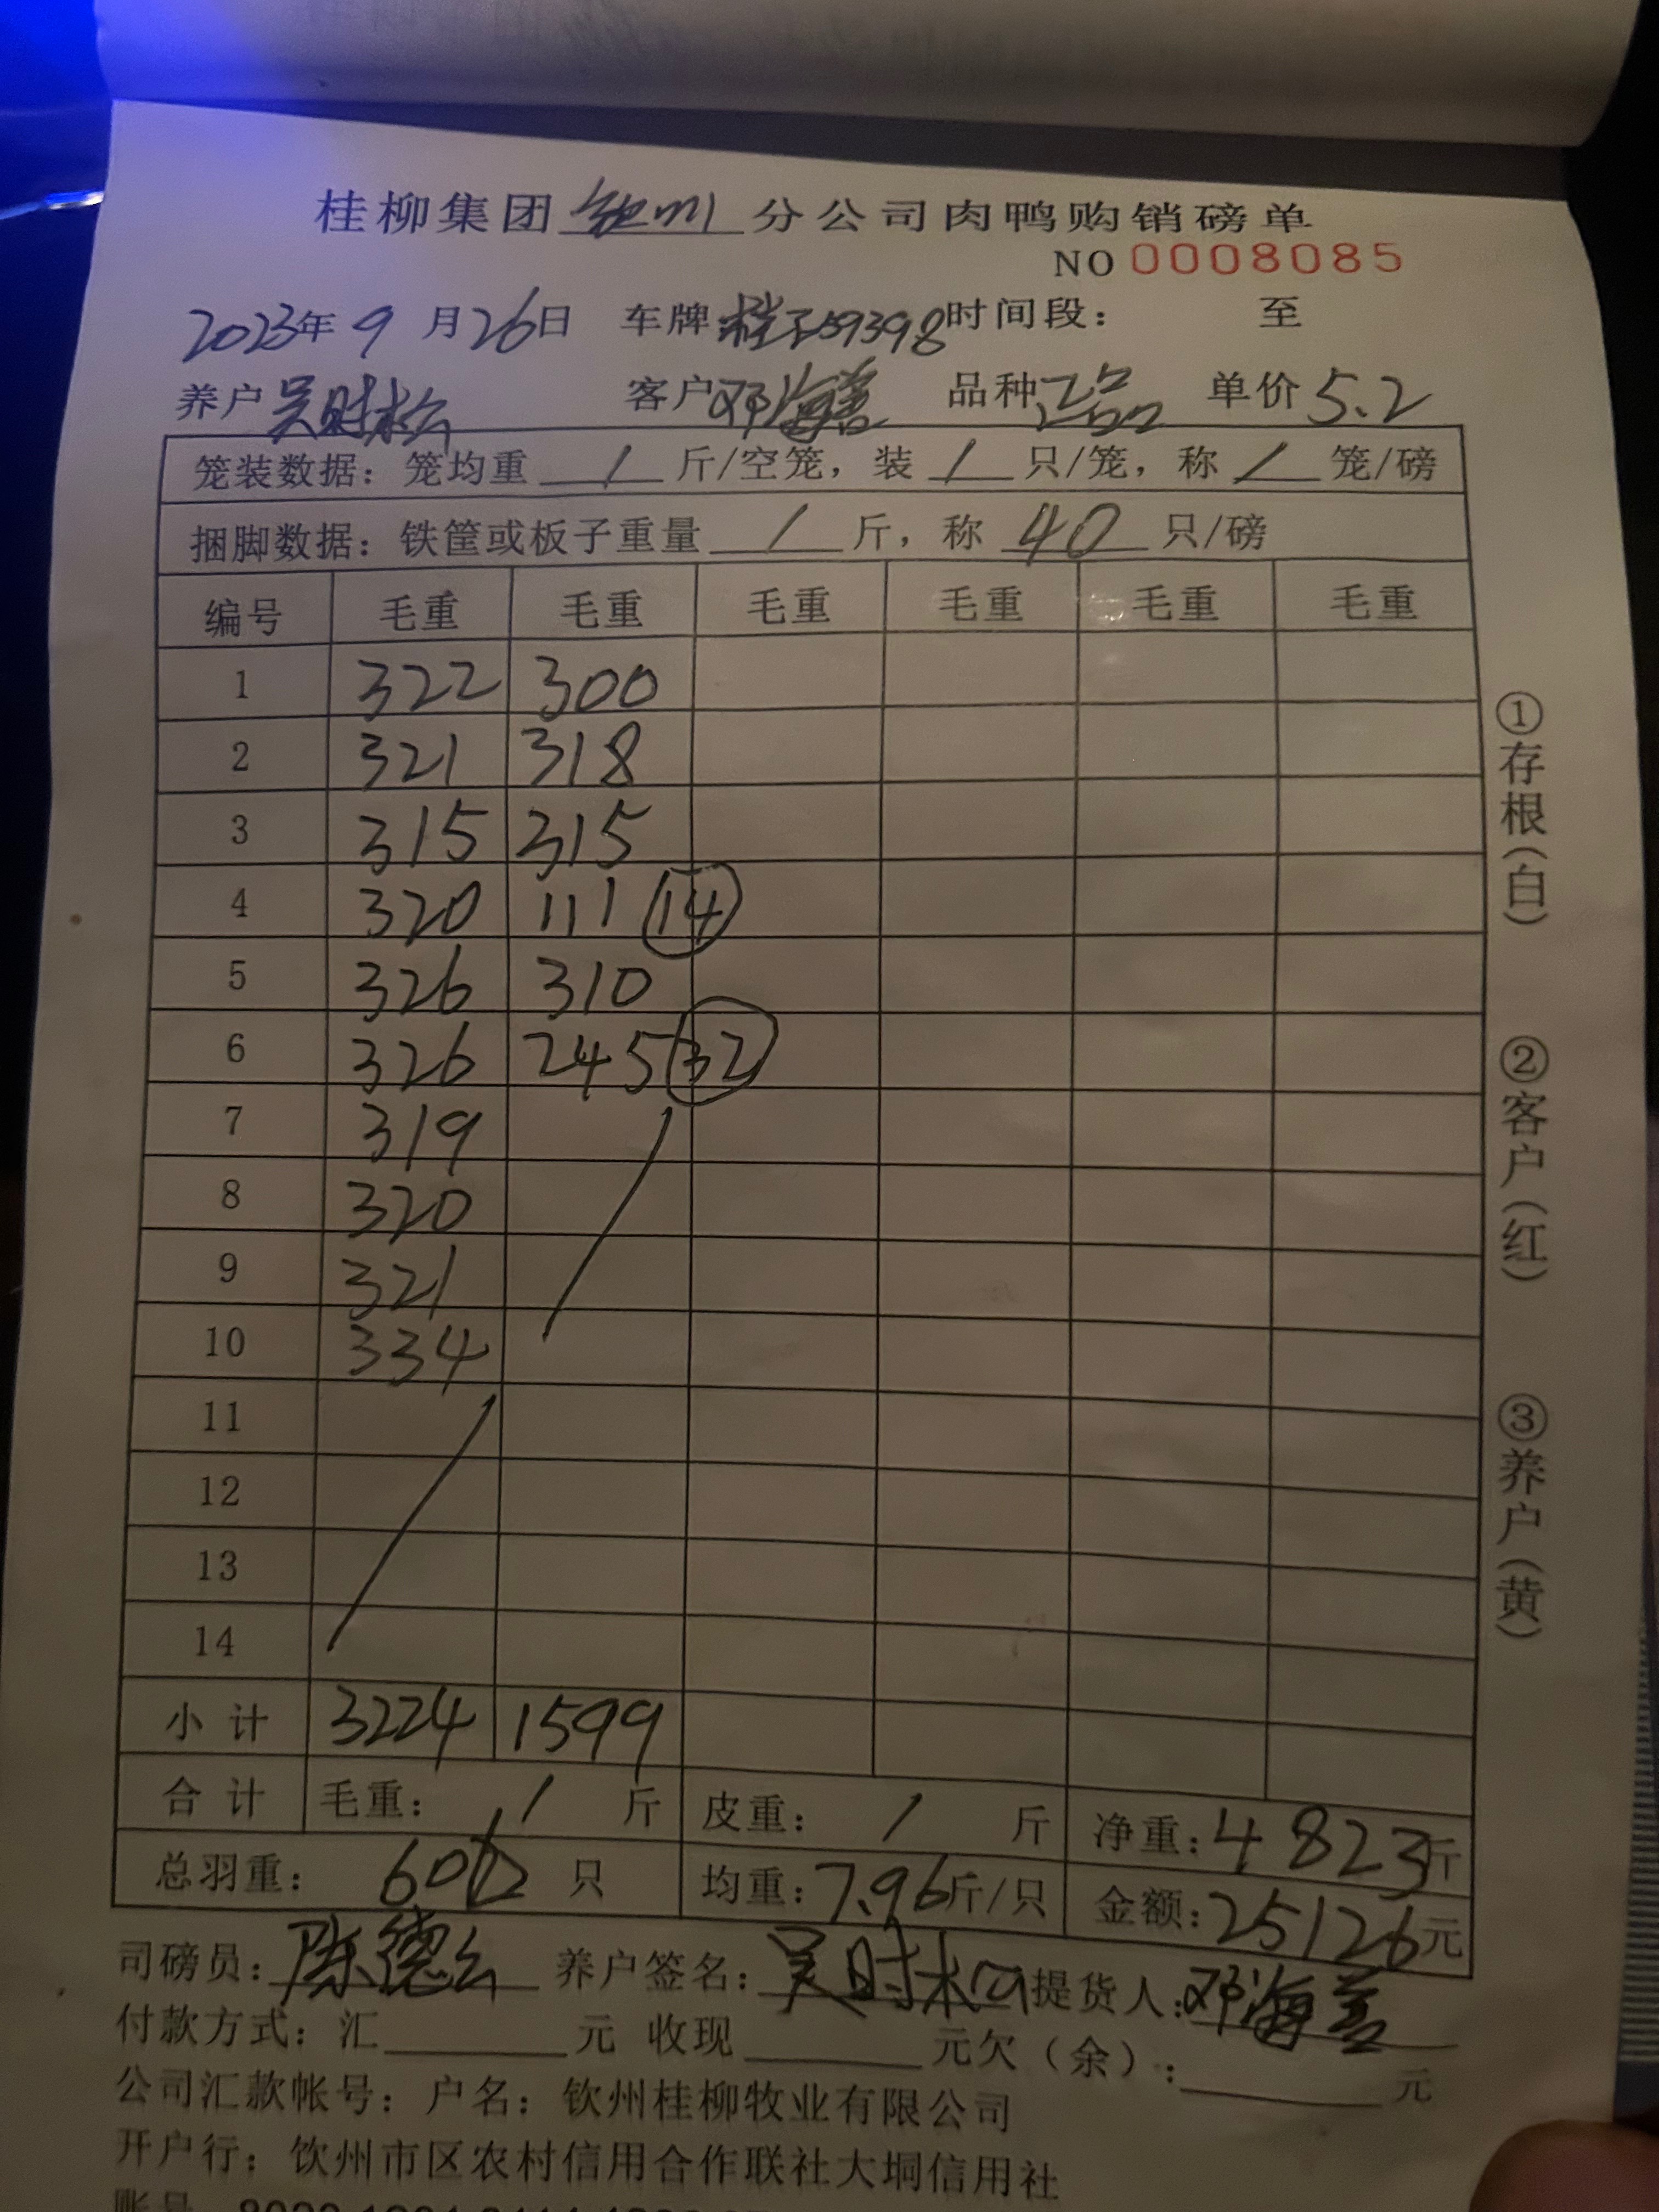 桂柳集团钦州分公司肉鸭购销磅单
NO 0008085
2023年9月26日 车牌 59398 时间段： 至
养户 吴时松 客户 邓海善 品种 正品 单价 5.2
笼装数据：笼均重 / 斤/空笼，装 / 只/笼，称 / 笼/磅
捆脚数据：铁筐或板子重量 / 斤，称 40 只/磅
编号 毛重 毛重 毛重 毛重 毛重 毛重
1 322 300
2 321 318
3 315 315
4 320 111 14
5 326 310
6 326 245 32
7 319
8 320
9 321
10 334
11
12
13
14
小计 3224 1599
合计 毛重： / 斤 皮重： / 斤 净重：4823斤
总羽重： 606 只 均重：7.96斤/只 金额：25126元
司磅员：陈德 养户签名：吴时松 提货人：邓海善
付款方式：汇 元 收现 元欠（余）： 元
公司汇款帐号：户名：钦州桂柳牧业有限公司
开户行：钦州市区农村信用合作联社大垌信用社
账号
①存根（白）
②客户（红）
③养户（黄）